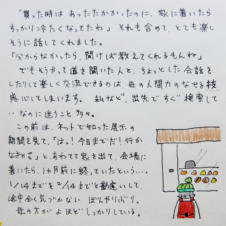 「買った時は あったたかかったのに、家に着いたら
すっかり冷たくなってたわ」それも含めて、とても楽し
そうに話してくれました。
「分からなかったら、聞けば教えてくれるもんね」
でも そうやって道を聞いた人と、ちょっとした会話を
したりして楽しく交流できるのは、母の人間力のなせる技
感心してしまいます。私など、出先で すぐ 検索して
‥なのに迷うこと多々。
この前は、ネットで知った展示の
期間を見て、「はっ！今日までだ！行か
なきゃ」と、あわてて家を出て、会場に
着いたら、1ヶ月前に終っていたという…。
1/14までを 2/14までと勘違いして、
途中全く気づかない ぼんやりぶり。
母の方が よほど しっかりしている。